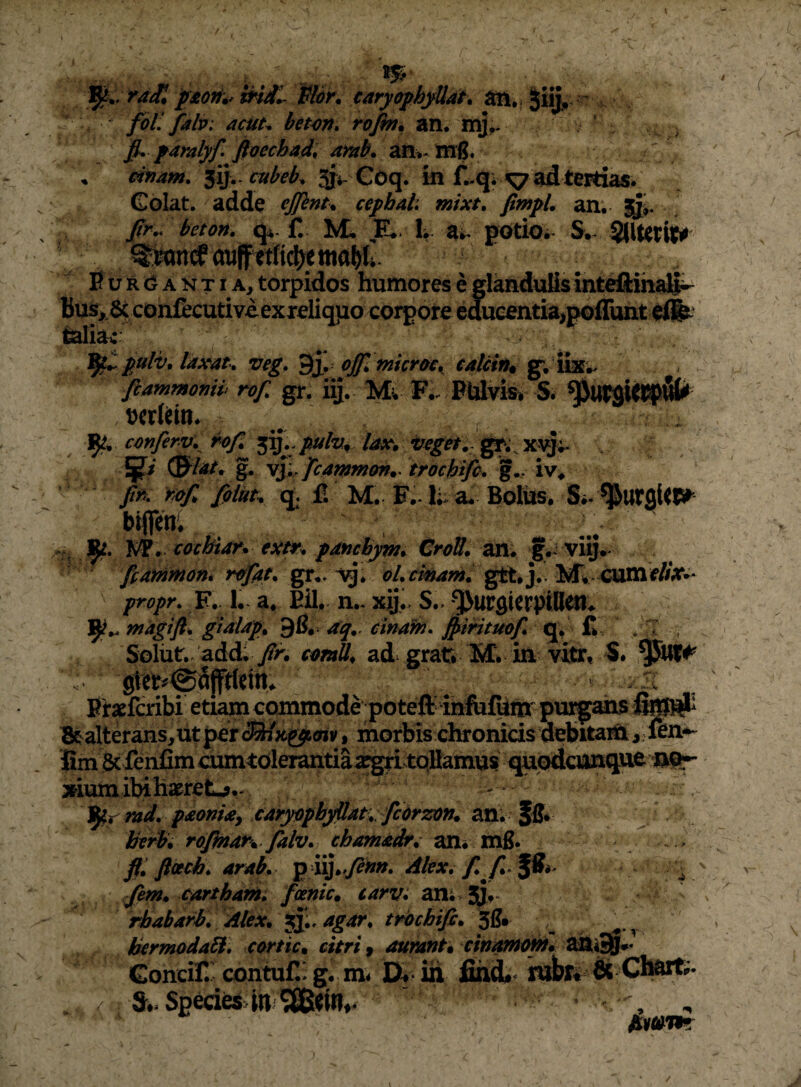 15
℞. rad. pæon. irid. Flor. caryophyllat. an. ℥iij.
fol. salv: acut. beton. rosm. an. mj.
fl. paralys. stoechad. arab. an. mß.
cinam. ʒij. cubeb. ʒj. Coq. in s. q. ▽ ad tertias.
Colat. adde essent. cephal: mixt. simpl. an. ʒj.
sir. beton. q. s. M. F. l. a. potio. S. Alterir-
Tranck auff etliche mahl.
PURGANTIA, torpidos humores è glandulis intestinali-
bus, & consecutivè ex reliquo corpore educentia, possunt esse
talia:
℞. pulv. laxat. veg. ℈j. oss. microc. calcin. g. iix.
scammonii ros. gr. iij. M. F. Pulvis. S. Purgierpül-
verlein.
℞. conserv. ros. ʒij. pulv. lax. veget. gr. xvj.
 lat. g. vj. scammon. trochisc. g. iv.
sir. ros. solut. q. s. M. F. l. a. Bolus. S. Purgier-
bissen.
℞. MP. cochiar. extr. panchym. Croll. an. g. viij.
scammon. rosat. gr. vj. ol. cinam. gtt. j. M. cum elix.
propr. F. l. a. Pil. n. xij. S. Purgierpillen.
℞. magist. gialap. ℈ß. aq. cinam. spirituos. q. s.
Solut. add. sir. corall. ad grat. M. in vitr. S. Pur-
gier-Säfftlein.
Præscribi etiam commodè potest infusum purgans simul
& alterans, ut per morbis chronicis debitam, sen-
sim & sensim cum tolerantia ægri tollamus quodcunque no-
xium ibi hæret.
℞. rad. pæoniæ, caryophyllat. scorzon. an. ℥ß.
herb. rosmar. salv. chamædr. an. mß.
fl. stœch. arab. p iij. senn. Alex. s. s. ℥ß.
sem. cartham. fœnic. carv. an. ʒj.
rhabarb. Alex. ʒj. agar. trochisc. ʒß.
hermodact. cortic. citri, aurant. cinamom. an. ℈j.
Concis. contus. g. m. D. in sind. rubr. & Chart.
S. Species in Wein.